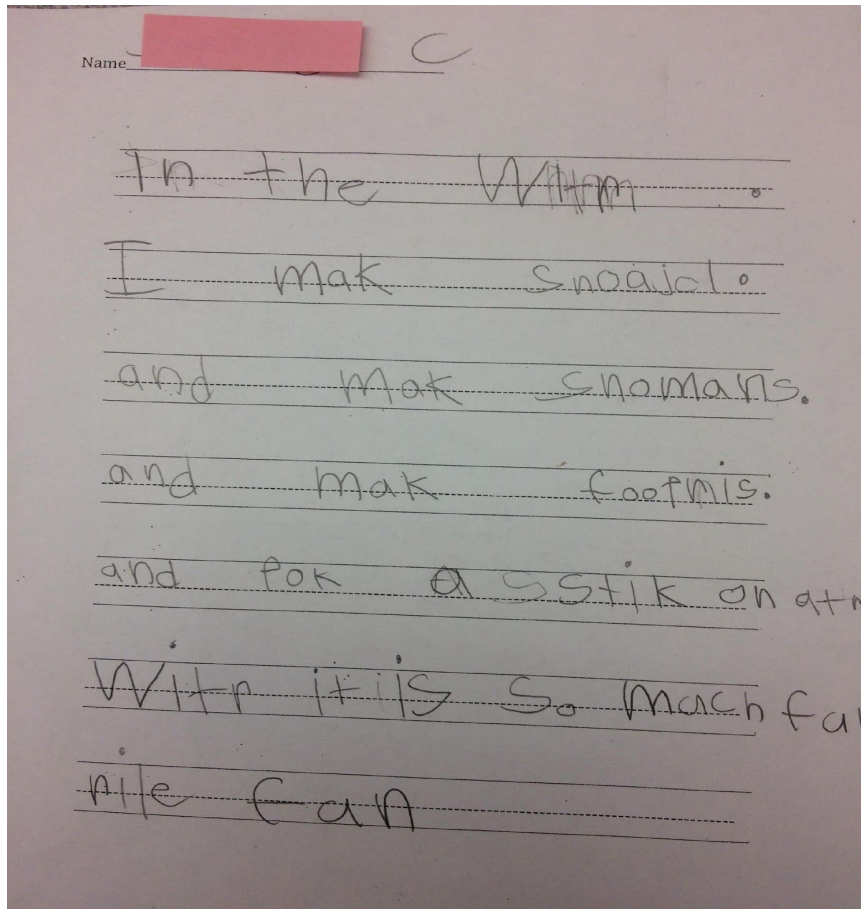 Name C
In the .
I mak snoajcl.
and mak snomans.
and mak footmis.
and pok a sstik on
Witr it is so mach
rile fan